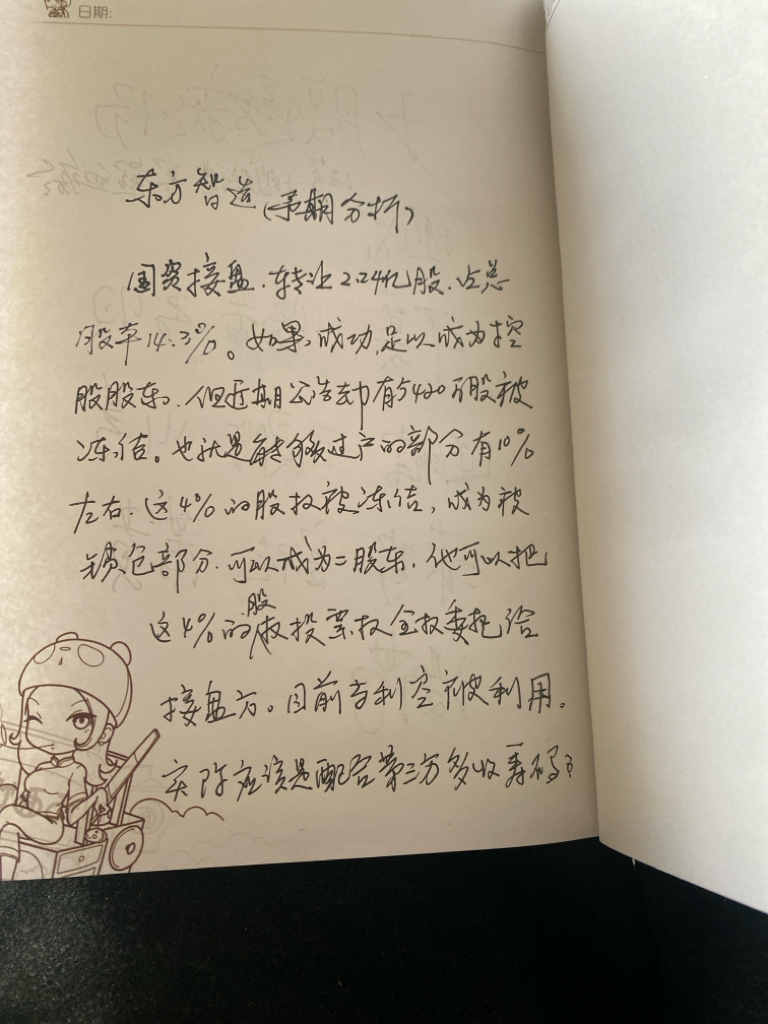 日期:
东方智造(予期分析)
国资接盘.转让2.24亿股.占总
股本14.3%。如果成功,足以成为控
股股东.但近期公告却有5420万股被
冻结。也就是能够过户的部分有10%
左右.这4%的股权被冻结,成为被
锁仓部分.可以成为二股东.他可以把
这4%的股权投票权全权委托给
接盘方。目前吉利空被利用。
实际应该是配合第三方多收筹码?